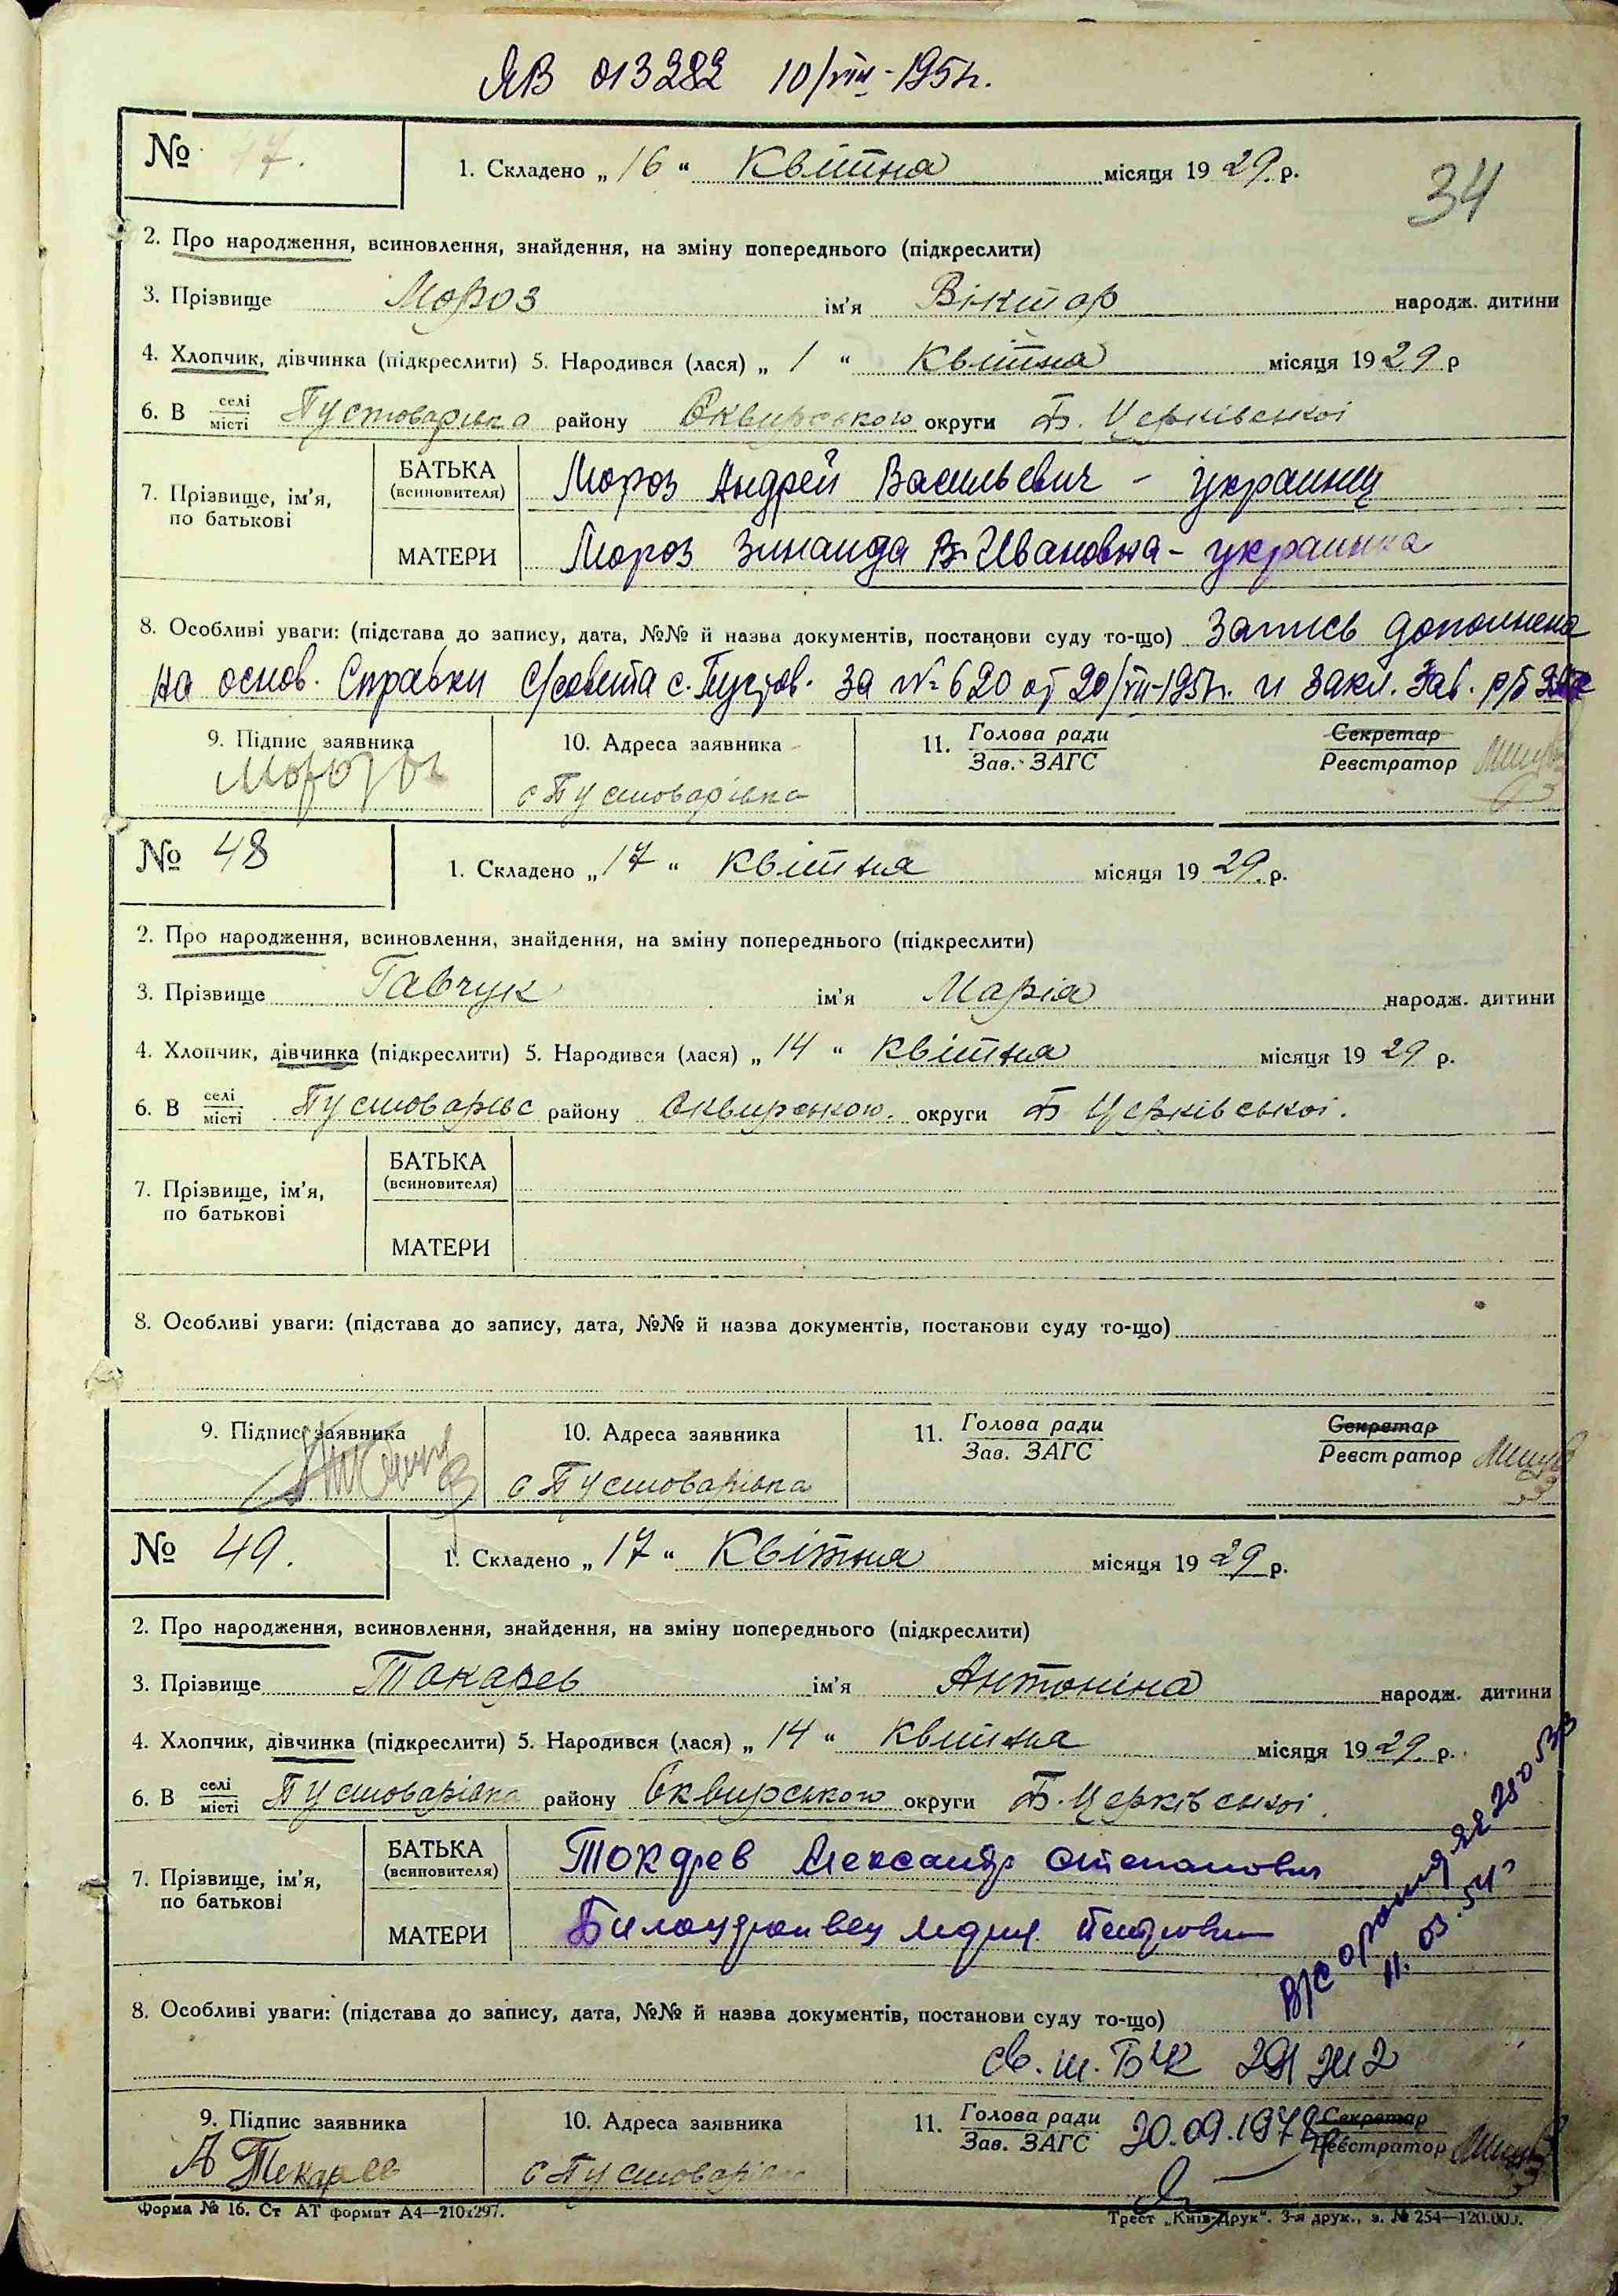 ЯВ 013282 10/VIII-195 г.
№ 47.
1. Складено „16“ Квітня місяця 1929 р.
34
2. Про народження, всиновлення, знайдення, на зміну попереднього (підкреслити)
3. Прізвище Мороз ім'я Віктор народж. дитини
4. Хлопчик, дівчинка (підкреслити) 5. Народився (лася) „1“ Квітня місяця 1929 р
6. В селі/місті Пустоварівка району Сквирського округи Б. Церківської
7. Прізвище, ім'я, по батькові
БАТЬКА (всиновителя) Мороз Андрей Васильевич - украинец
МАТЕРИ Мороз Зинаида Ивановна - украинка
8. Особливі уваги: (підстава до запису, дата, №№ й назва документів, постанови суду то-що) Запись дополнена
на основ. Справки С/совета с. Пустов. за № 620 от 20/VII-195 г. и закл. Зав. р/б
9. Підпис заявника Мороз
10. Адреса заявника с Пустоварівка
11. Голова ради/Зав. ЗАГС
Секретар/Реєстратор
№ 48
1. Складено „17“ Квітня місяця 1929 р.
2. Про народження, всиновлення, знайдення, на зміну попереднього (підкреслити)
3. Прізвище Гавчук ім'я Марія народж. дитини
4. Хлопчик, дівчинка (підкреслити) 5. Народився (лася) „14“ Квітня місяця 1929 р.
6. В селі/місті Пустоварівс району Сквирського округи Б Церківської.
7. Прізвище, ім'я, по батькові
БАТЬКА (всиновителя)
МАТЕРИ
8. Особливі уваги: (підстава до запису, дата, №№ й назва документів, постанови суду то-що)
9. Підпис заявника
10. Адреса заявника с Пустоварівка
11. Голова ради/Зав. ЗАГС
Секретар/Реєстратор
№ 49.
1. Складено „17“ Квітня місяця 1929 р.
2. Про народження, всиновлення, знайдення, на зміну попереднього (підкреслити)
3. Прізвище Токарев ім'я Антоніна народж. дитини
4. Хлопчик, дівчинка (підкреслити) 5. Народився (лася) „14“ Квітня місяця 1929 р.
6. В селі/місті Пустоварівка району Сквирського округи Б. Церківської.
7. Прізвище, ім'я, по батькові
БАТЬКА (всиновителя) Токарев Александр Степанович
МАТЕРИ Петровна
11. 03. 54
8. Особливі уваги: (підстава до запису, дата, №№ й назва документів, постанови суду то-що)
св.
9. Підпис заявника А Токарев
10. Адреса заявника с Пустоварівка
11. Голова ради/Зав. ЗАГС 20.09.197
Секретар/Реєстратор
Форма № 16. Ст АТ формат А4—210х297.
Трест „Київ-Друк“. 3-я друк., з. № 254—120.000.